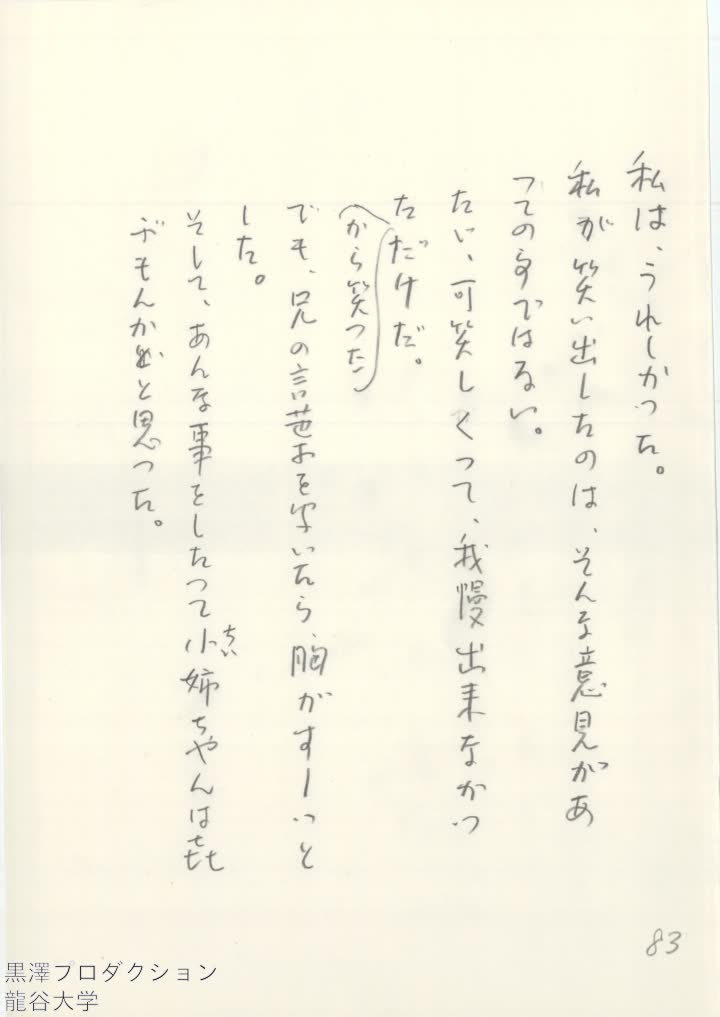 私は、うれしかった。
私が笑い出したのは、そんな意見があ
っての事ではない。
たゞ、可笑しくって、我慢出来なかっ
ただけだ。
(から笑った)
でも、兄の言葉を聞いたら、胸がすーっと
した。
そして、あんな事をしたって小姉ちゃんは㐂
ぶもんかと思った。
ちい
83
黒澤プロダクション
龍谷大学